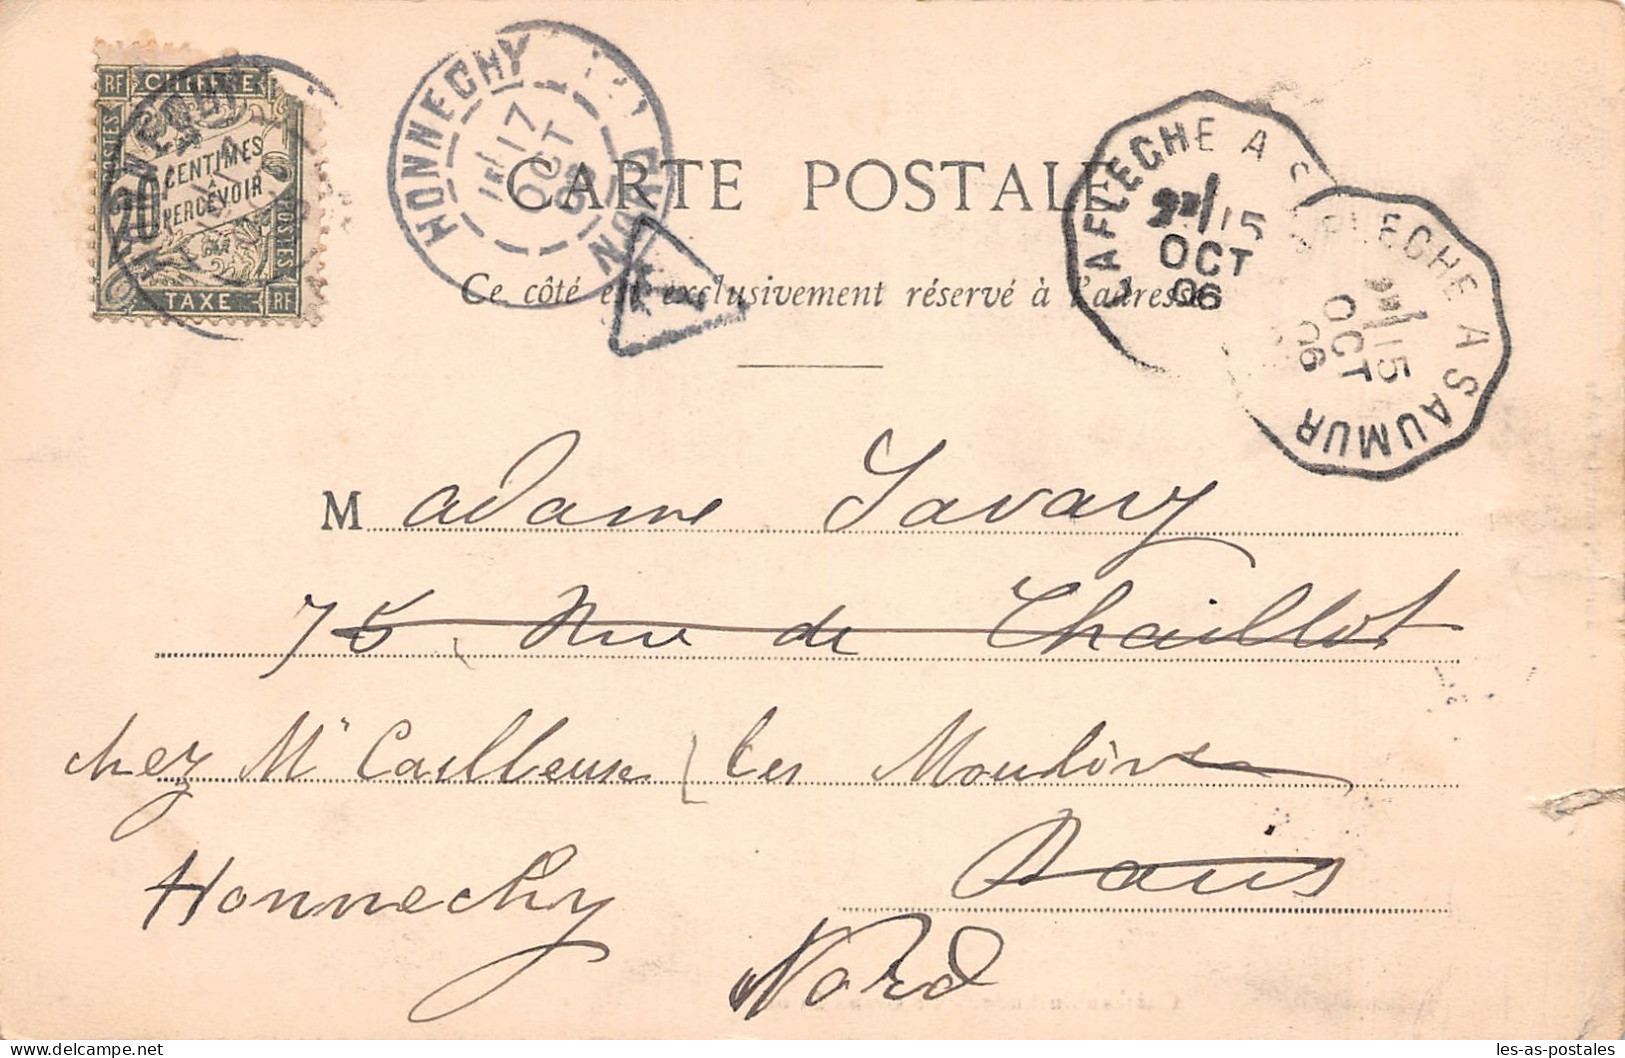 RF CHIFFRE
POSTES
20 CENTIMES
À
PERCEVOIR
POSTES
TAXE RF
HONNECHY
HONNECHY
17
OCT
06
NORD
T
LA FLÈCHE A S
15
OCT
06
FLECHE A SAUMUR
15
OCT
06
CARTE POSTALE
Ce côté est exclusivement réservé à l'adresse
Madame Savary
75, Rue de Chaillot
chez Mr Cailleuse les Moulins
Paris
Honnechy
Nord
les-as-postales